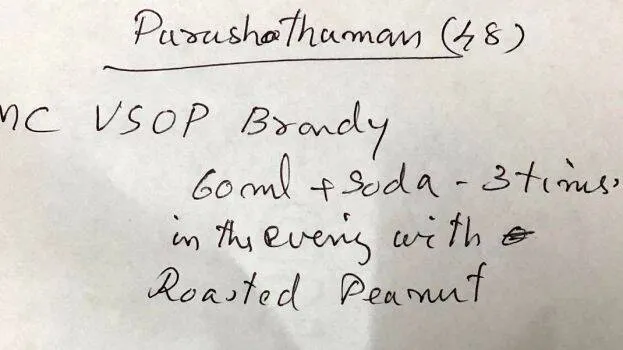 Purushothaman (48)
MC VSOP Brandy
60ml + Soda - 3 times.
in the evening with
Roasted Peanut